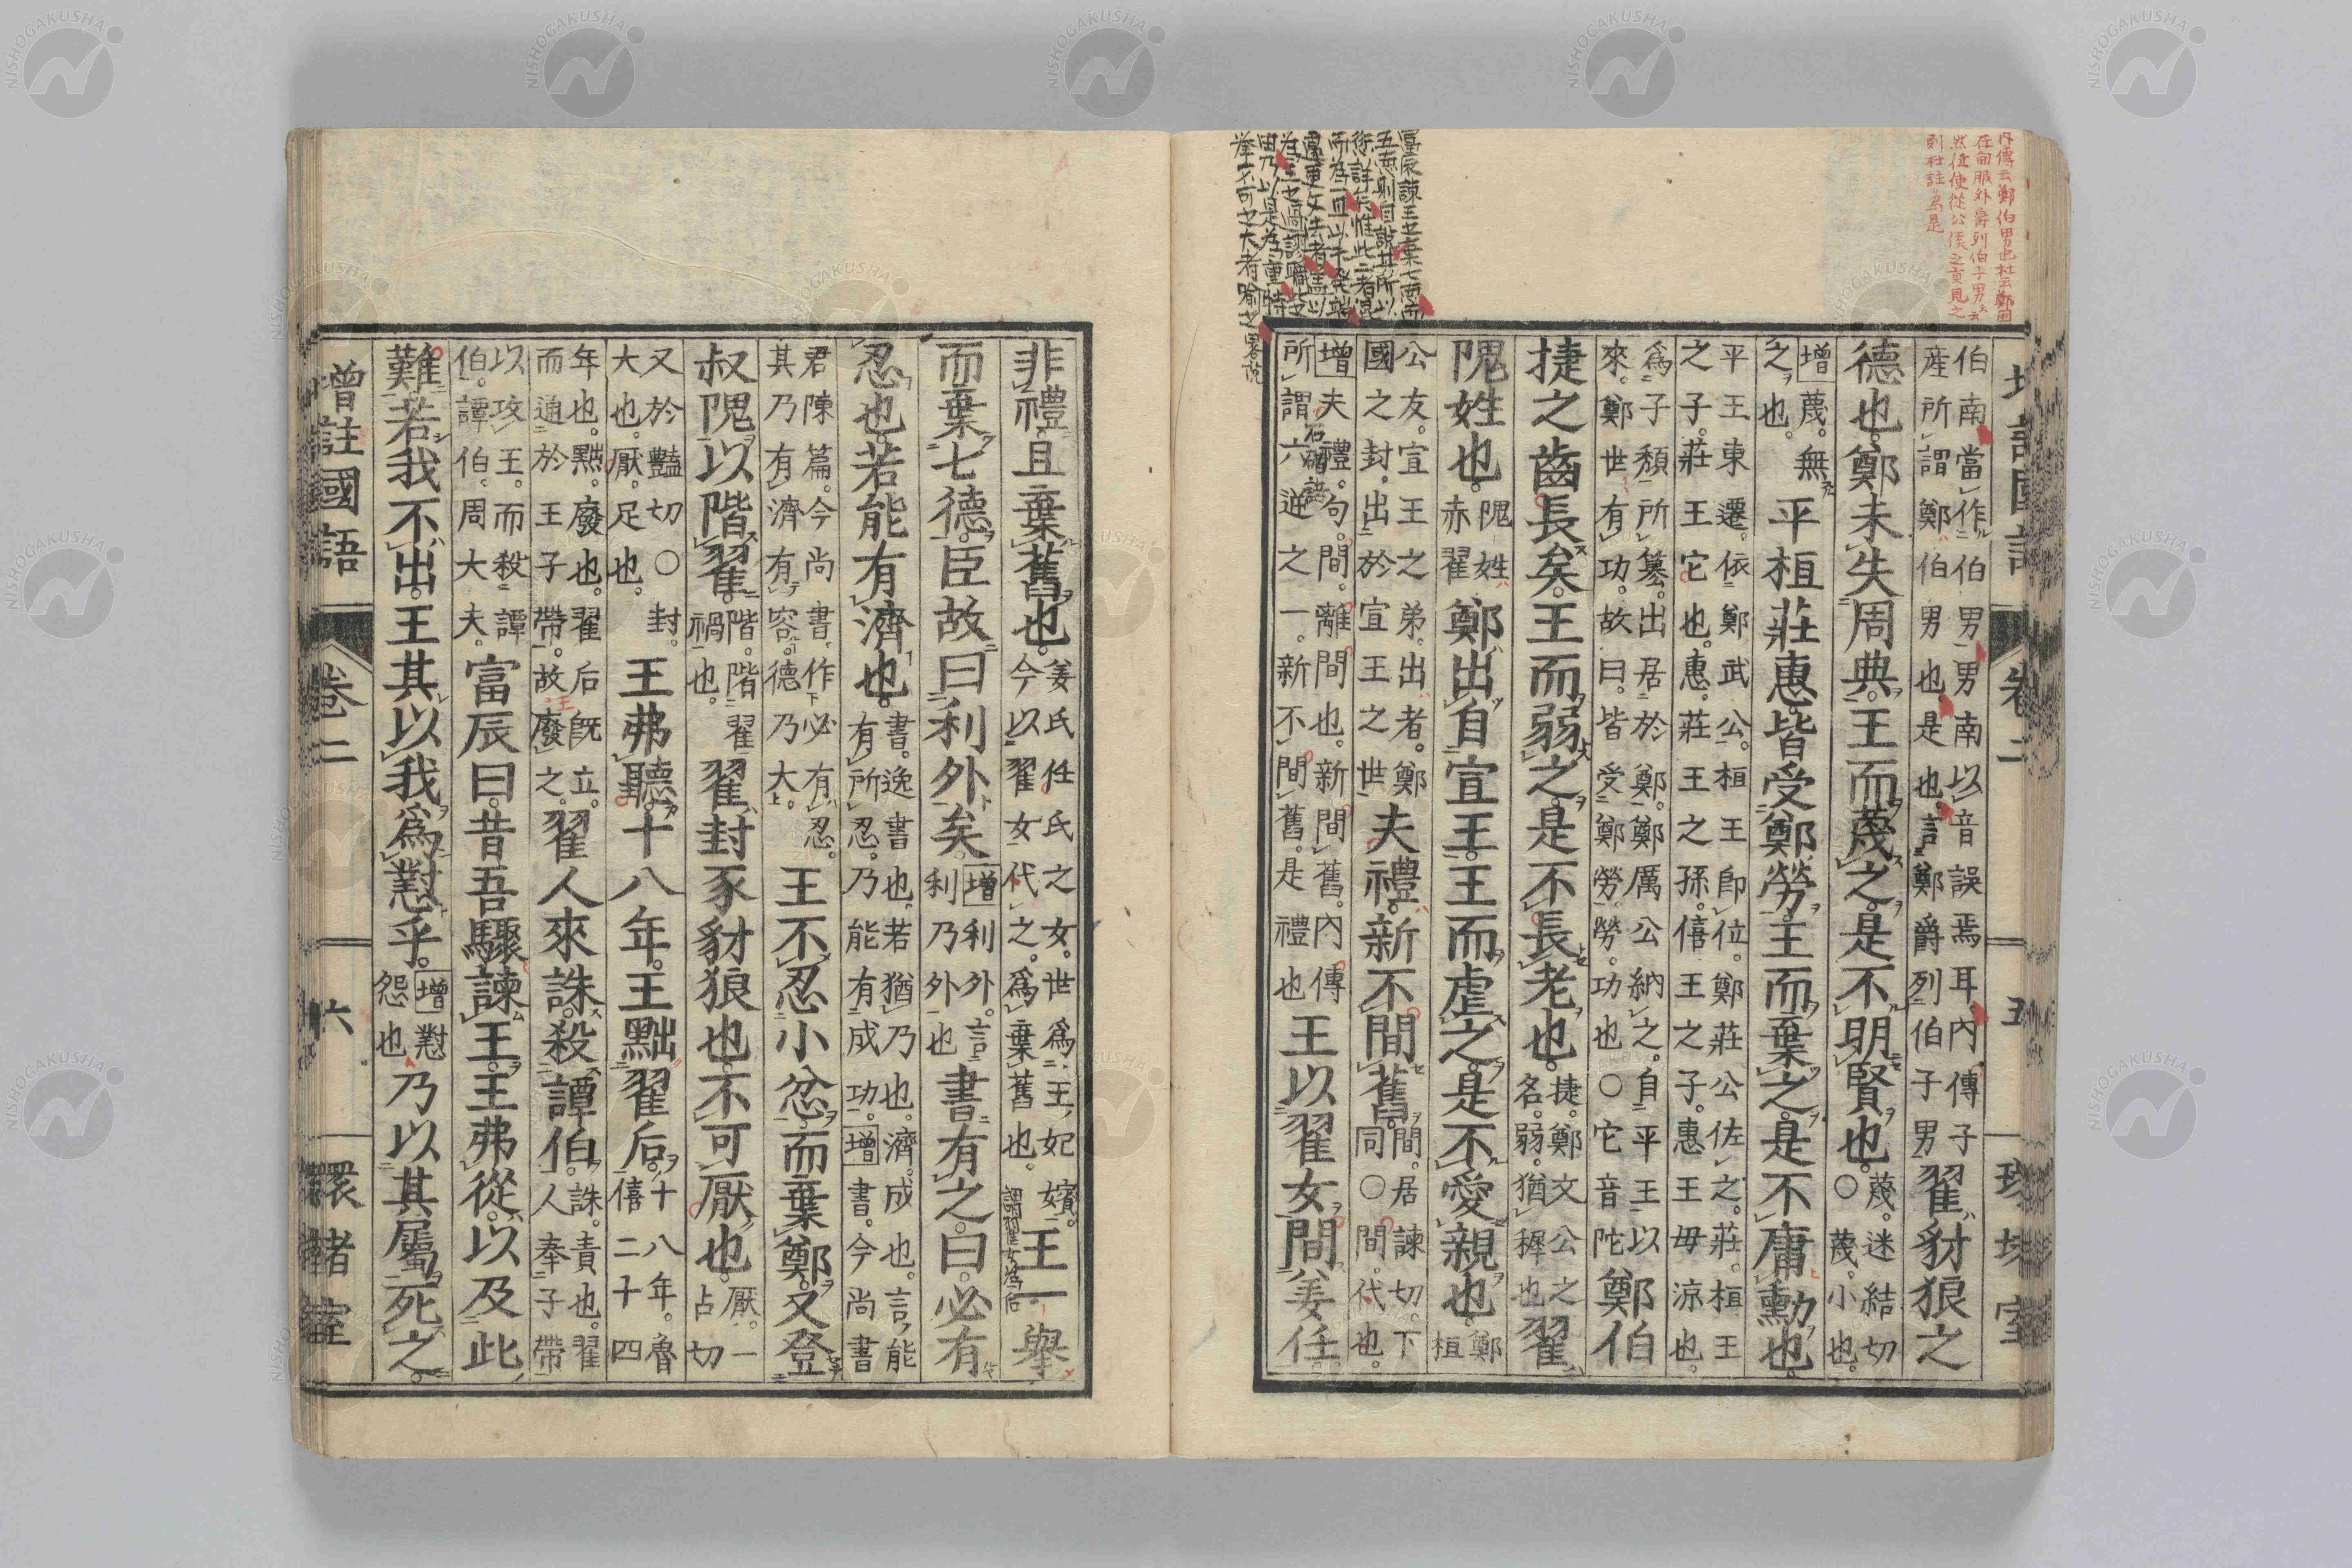 內傳云鄭伯男也杜云鄭
然使從公侯之貢
則杜註爲是
富辰諫王之棄七德而
卷二
五
伯南當作伯男男南以音誤焉耳內傳子産所謂鄭伯男也是也言鄭爵列伯子男翟豺狼之
德也。鄭未失周典。王而蔑之。是不明賢也。蔑。迷結切〇蔑。小也。
增蔑。無之也。平桓莊惠皆受鄭勞。王而棄之。是不庸勳也。
平王東遷。依鄭武公。桓王卽位。鄭莊公佐之。莊。桓王之子。莊王它也。惠。莊王之孫。僖王之子。惠王毋涼也。
爲子頽所簒。出居於鄭。鄭厲公納之。自平王以來。鄭世有功。故曰。皆受鄭勞。勞。功也〇它音陀鄭伯
捷之齒長矣。王而弱之。是不長老也。捷。鄭文公之名。弱。猶穉也翟
隗姓也。隗姓赤翟鄭出自宣王。王而虐之。是不愛親也。鄭桓
公友。宣王之弟。出者。鄭國之封。出於宣王之世夫禮。新不間舊。間。居諫切。下同〇間。代也。
增夫禮。句。間。離間也。新間舊。內傳所謂六逆之一。新不間舊。是禮也王以翟女間姜任。
非禮且棄舊也。姜氏任氏之女。世爲王妃嬪。今以翟女代之。爲棄舊也。王一舉
謂翟女爲后
而棄七德。臣故曰利外矣。增利外。言利乃外也書有之。曰。必有
忍也。若能有濟也。書。逸書也。若猶乃也。濟。成也。言能有所忍。乃能有成功。增書。今尚書
君陳篇。今尚書作必有忍。其乃有濟有容。德乃大。王不忍小忿。而棄鄭。又登
叔隗以階翟。階。階翟禍也。翟封豕豺狼也。不可厭也。厭。一占切
又於豔切〇封。大也。厭。足也。王弗聽。十八年。王黜翟后。十八年。魯僖二十四
年也。黜。廢也。翟后旣立。而通於王子帶。故廢之。翟人來誅。殺譚伯。誅。責也。翟人奉子帶
以攻王。而殺譚伯。譚伯。周大夫。富辰曰。昔吾驟諫王。王弗從。以及此
難。若我不出。王其以我爲懟乎。增懟怨也乃以其屬死之。
增註國語
卷二
六
環堵室